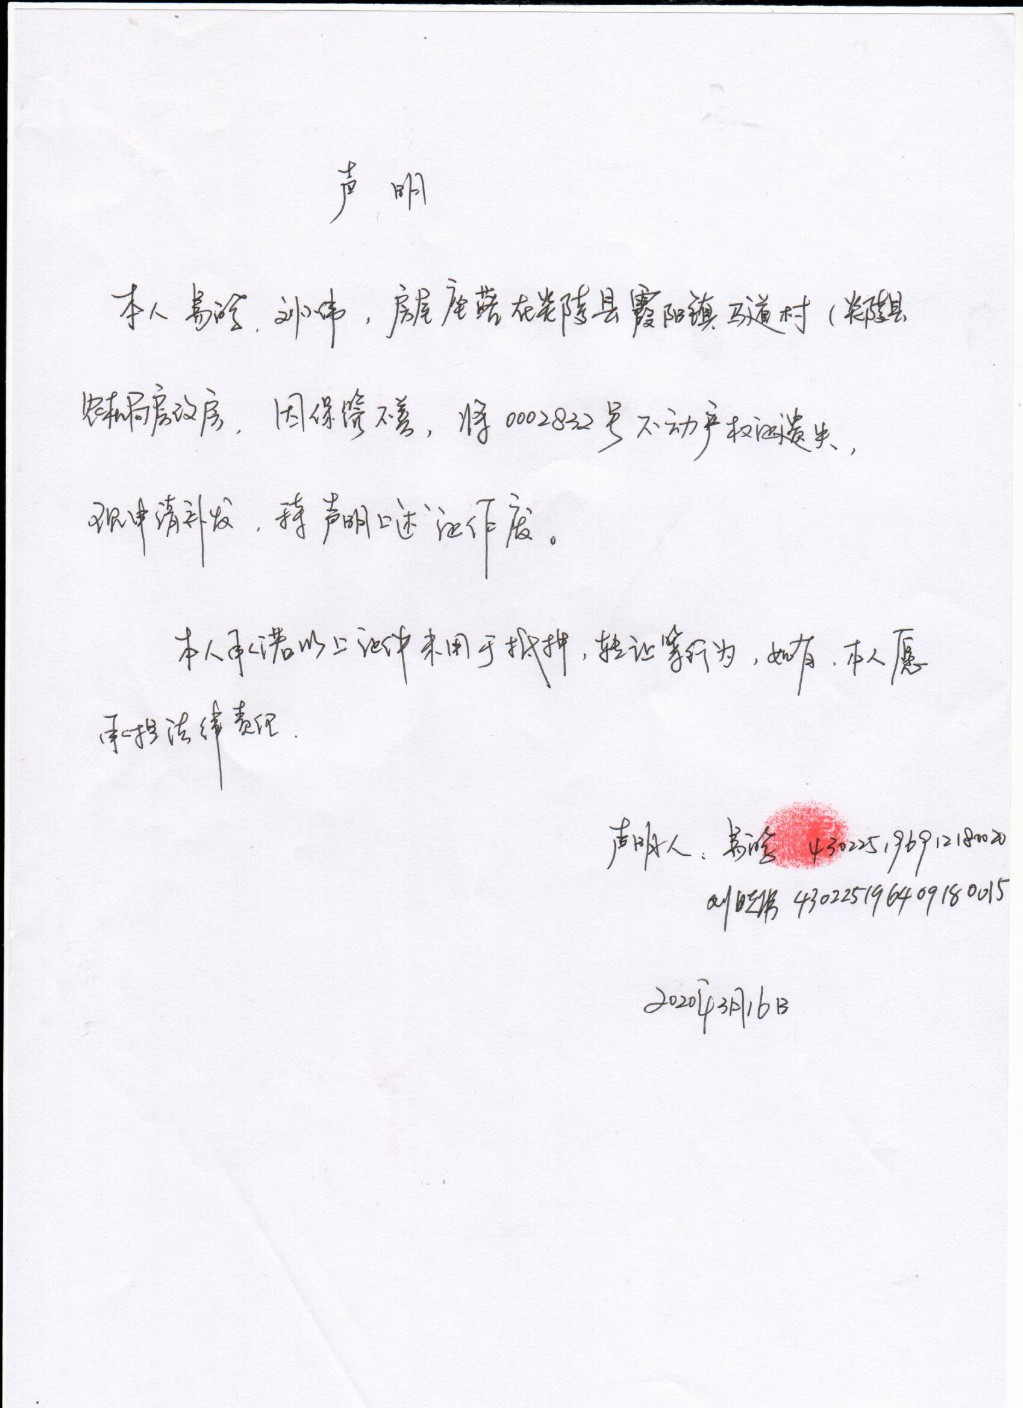 声 明
本人易晗、刘小伟，房屋座落在炎陵县霞阳镇马道村（炎陵县
农机局房改房，因保管不善，将0002832号不动产权证遗失，
现申请补发，特声明上述证作废。
本人承诺以上证件未用于抵押，转让等行为，如有，本人愿
承担法律责任.
声明人：易晗 430225196912180020
刘 430225196409180015
2020年3月16日